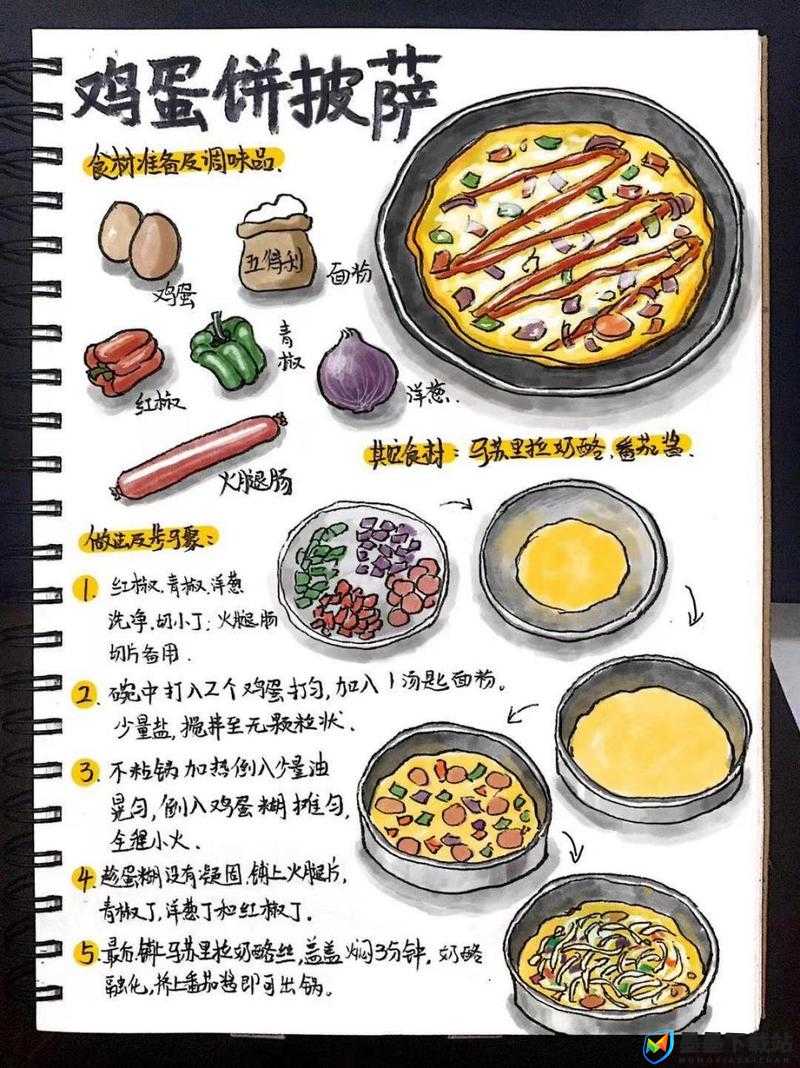 鸡蛋饼披萨
食材准备及调味品.
鸡蛋
五得利
面粉
红椒
青椒
洋葱.
火腿肠
其它食材：马苏里拉奶酪、番茄酱.
做法及步骤：
1. 红椒.青椒.洋葱
洗净.切小丁；火腿肠
切片备用.
2. 碗中打入2个鸡蛋打匀,加入1汤匙面粉。
少量盐,搅拌至无颗粒状.
3. 不粘锅加热倒入少量油
晃匀,倒入鸡蛋糊摊匀,
全程小火.
4. 趁蛋糊没有凝固.铺上火腿片,
青椒丁,洋葱丁和红椒丁.
5. 最后铺上马苏里拉奶酪丝,盖盖焖3分钟,奶酪
融化,挤上番茄酱即可出锅.
下载站